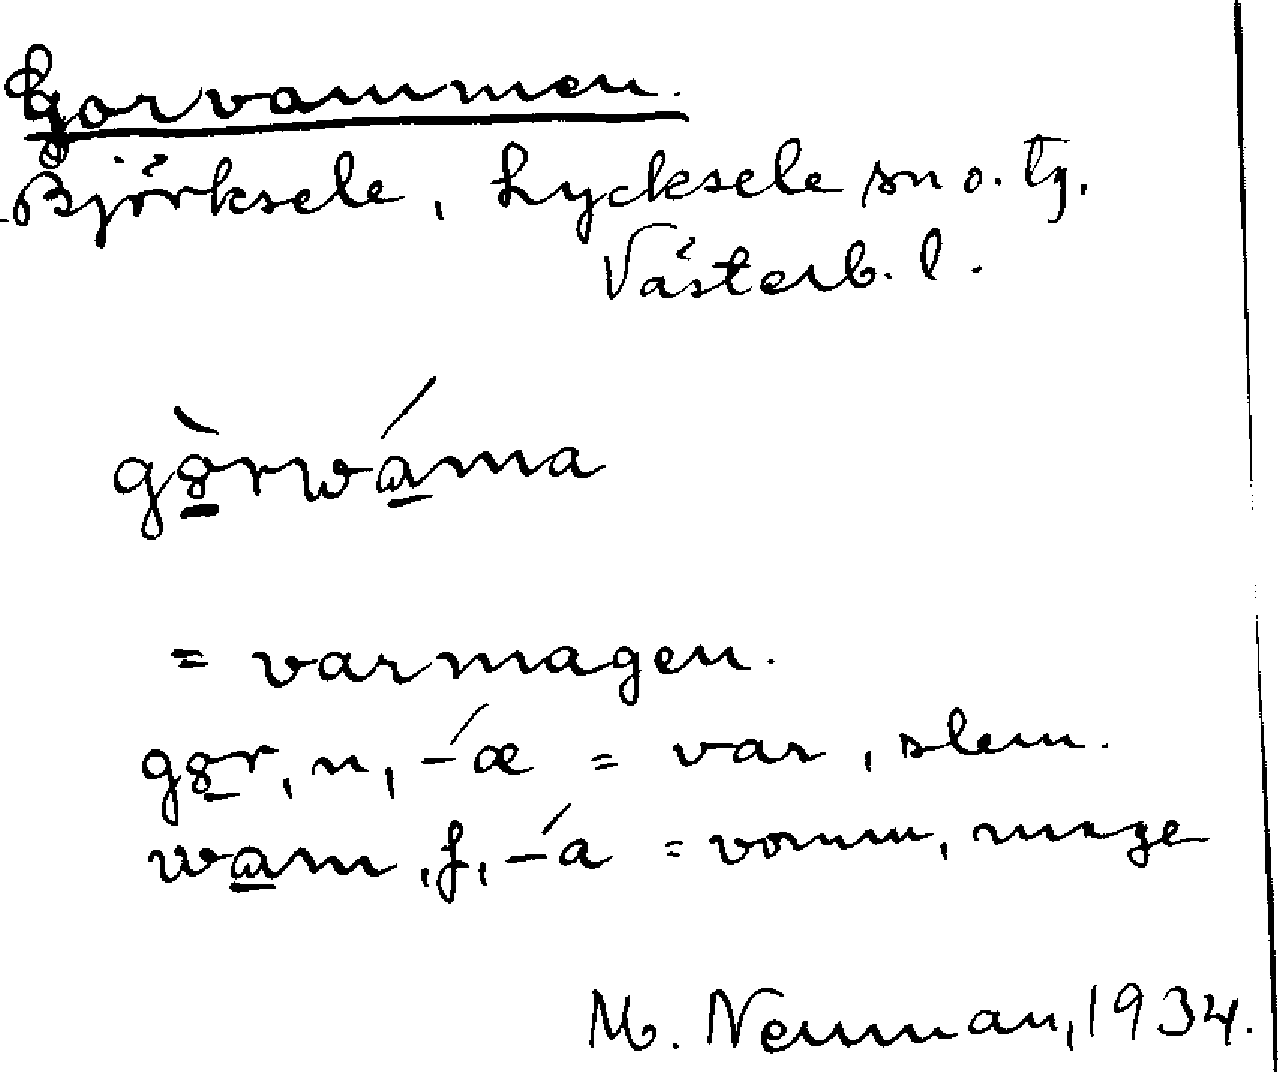 Gorvammen.
Björksele, Lycksele sn o. tg.
Västerb. l.
gȍ̲rwá̲ma
= varmagen.
go̲r, n, -́æ = var, slem.
wa̲m, f, -́a = vomm, mage
M. Neuman, 1934.